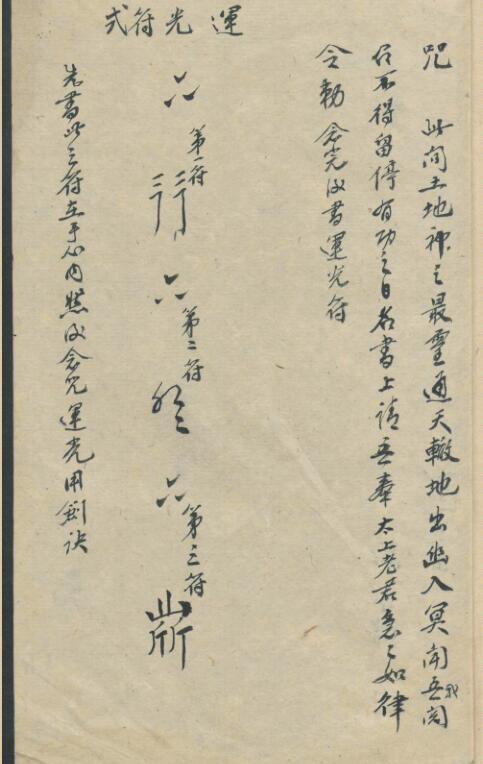 咒 此間土地神之最靈通天轍地出幽入冥聞吾我関
召不得留停有功之日名書上請吾奉太上老君急〻如律
令勅 念完後書運光符
運光符式
第一符
第二符
第三符
先書此三符在手心内然後念咒運光用劍訣